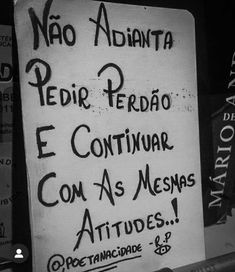 Não Adianta
Pedir Perdão
E Continuar
Com As Mesmas
Atitudes..!
@poetanacidade -R.P
MÁRIO
DE